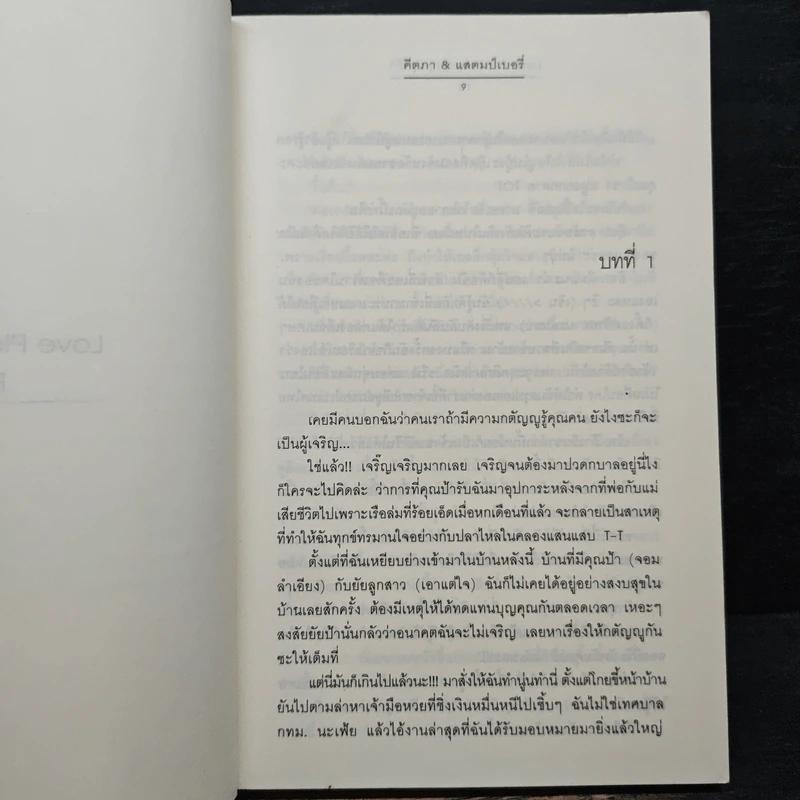 Love
คีตภา & แสตมป์เบอรี่
9
บทที่ 1
เคยมีคนบอกฉันว่าคนเราถ้ามีความกตัญญูรู้คุณคน ยังไงซะก็จะ
เป็นผู้เจริญ...
ใช่แล้ว!! เจริ๊ญเจริญมากเลย เจริญจนต้องมาปวดกบาลอยู่นี่ไง
ก็ใครจะไปคิดล่ะ ว่าการที่คุณป้ารับฉันมาอุปการะหลังจากที่พ่อกับแม่
เสียชีวิตไปเพราะเรือล่มที่ร้อยเอ็ดเมื่อหกเดือนที่แล้ว จะกลายเป็นสาเหตุ
ที่ทำให้ฉันทุกข์ทรมานใจอย่างกับปลาไหลในคลองแสนแสบ T-T
ตั้งแต่ที่ฉันเหยียบย่างเข้ามาในบ้านหลังนี้ บ้านที่มีคุณป้า (จอม
ลำเอียง) กับยัยลูกสาว (เอาแต่ใจ) ฉันก็ไม่เคยได้อยู่อย่างสงบสุขใน
บ้านเลยสักครั้ง ต้องมีเหตุให้ได้ทดแทนบุญคุณกันตลอดเวลา เหอะๆ
สงสัยยัยป้านั่นกลัวว่าอนาคตฉันจะไม่เจริญ เลยหาเรื่องให้กตัญญูกัน
ซะให้เต็มที่
แต่นี่มันก็เกินไปแล้วนะ!!! มาสั่งให้ฉันทำนู่นทำนี่ ตั้งแต่โกยขี้หน้าบ้าน
ยันไปตามล่าหาเจ้ามือหวยที่ชิ่งเงินหมื่นหนีไปเชิ้บๆ ฉันไม่ใช่เทศบาล
กทม. นะเฟ้ย แล้วไอ้งานล่าสุดที่ฉันได้รับมอบหมายมายิ่งแล้วใหญ่